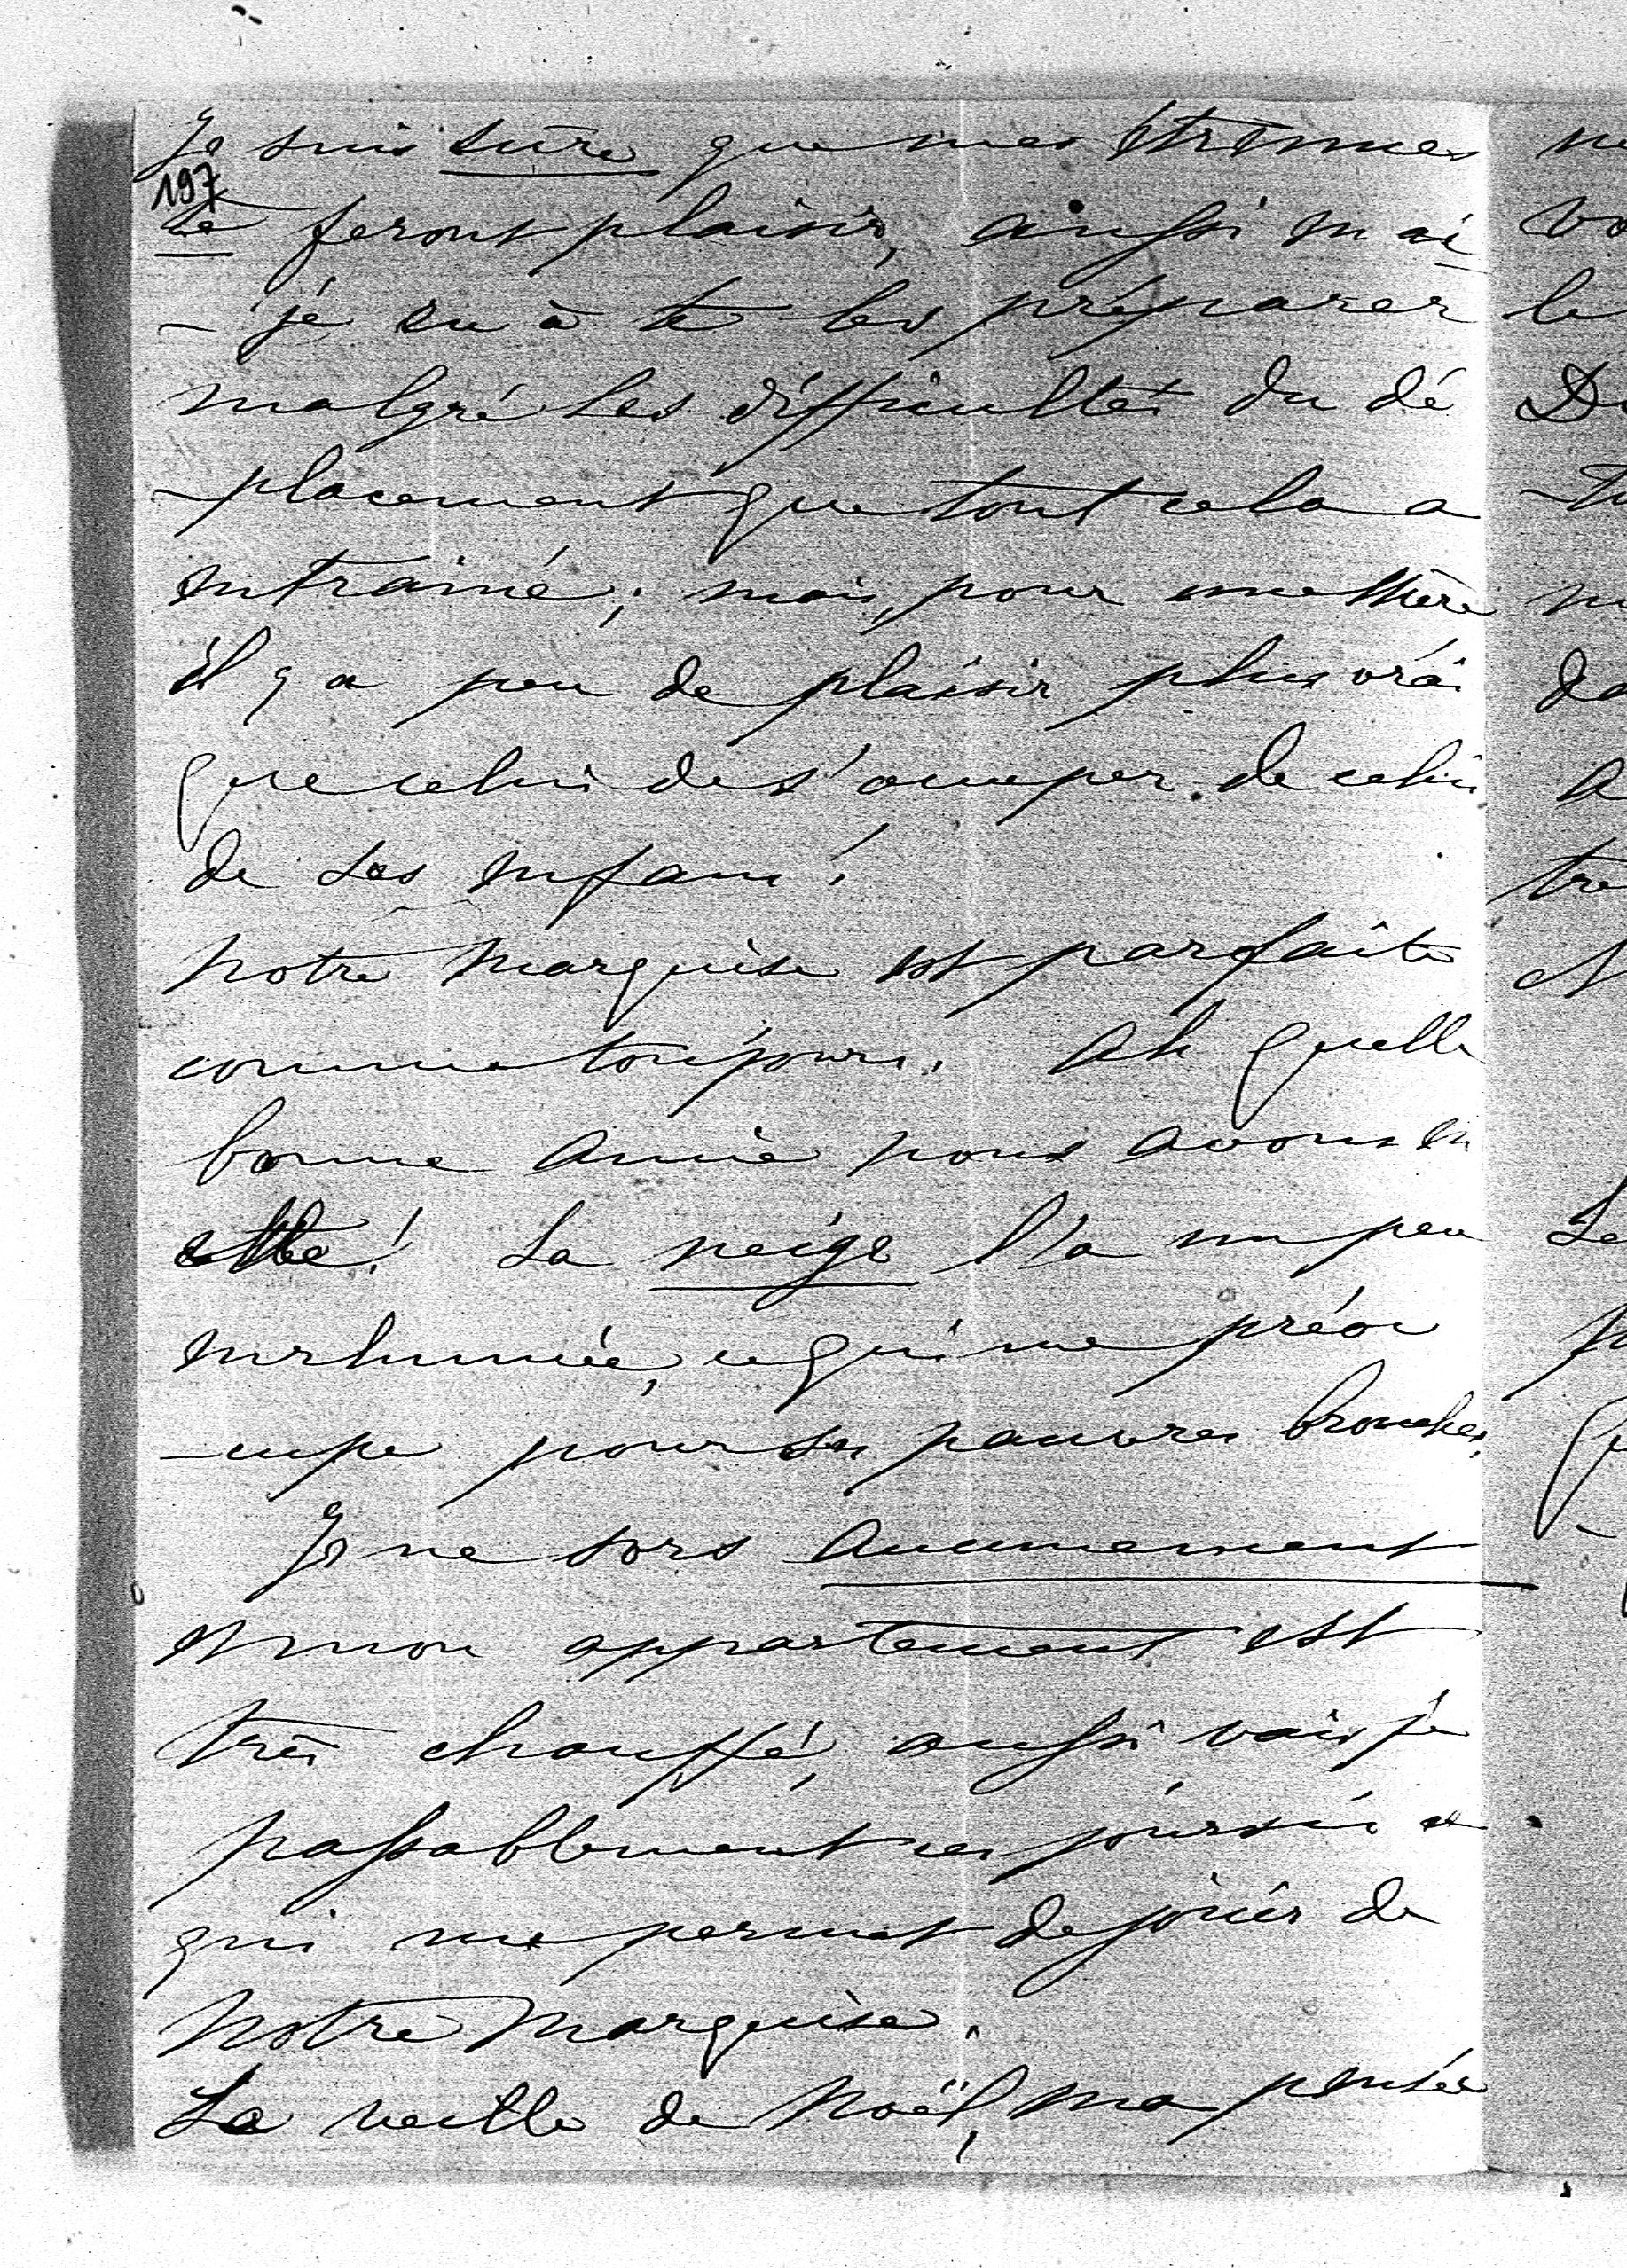 Je suis sûre que mes étrennes
197
te feront plaisir, aussi m'ai
- je eu à te les préparer
malgré les difficultés du dé
-placement que tout cela a
entraîné; mais pour une Mère
il y a peu de plaisir plus vrai
que celui de s'occuper de celui
de ses enfans!
Notre Marquise est parfaite
comme toujours. Ah quelle
bonne amie nous avons en
elle! La neige l'a un peu
enrhumée, ce qui me préoc
-cupe pour ses pauvres bronches.
Je ne sors aucunement
et mon appartement est
très chauffé, aussi vais je
passablement ces jours ci ce
qui me permet de jouir de
Notre Marquise.
La veille de Noël, ma pensée